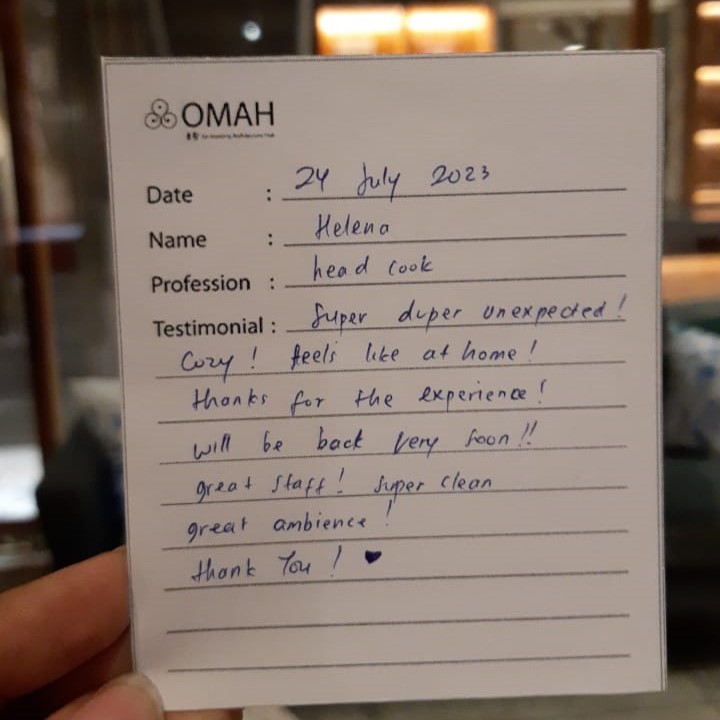 OMAH
Date : 24 July 2023
Name : Helena
Profession : head cook
Testimonial : Super duper unexpected!
Cozy! feels like at home!
thanks for the experience!
will be back very soon!!
great staff! super clean
great ambience!
thank You! ♥